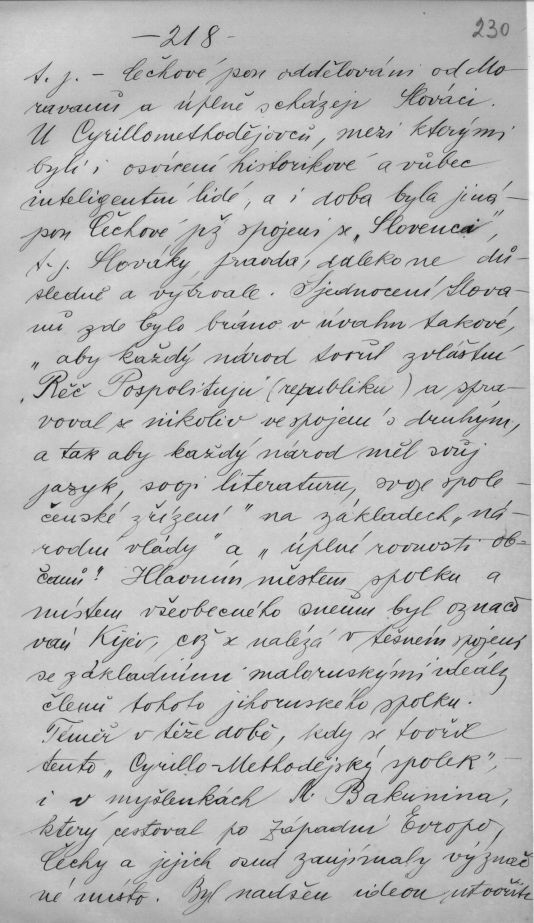 230
- 218 -
t. j. - Čechové jsou oddělováni od Mo-
ravanů a úplně scházejí Slováci.
U Cyrillomethodějovců, mezi kterými
byli i osvícení historikové a vůbec
inteligentní lidé, a i doba byla jiná -
jsou Čechové již spojeni se „Slovenci",
t. j. Slováky, pravda, daleko ne dů-
sledně a vytrvale. Sjednocení Slova-
nů zde bylo bráno v úvahu takové,
„aby každý národ tvořil zvláštní
Řěč Pospolituju (republiku) a spra-
voval se nikoliv ve spojení s druhým,
a tak aby každý národ měl svůj
jazyk, svoji literaturu, svoje spole-
čenské zřízení" na základech „ná-
rodní vlády" a „úplné rovnosti ob-
čanů". Hlavním městem spolku a
místem všeobecného sněmu byl označo
ván Kyjev, což se nalézá v těsném spojení
se základními maloruskými ideály
členů tohoto jihoruského spolku.
Téměř v téže době, kdy se tvořil
tento „Cyrillo-Methodějský spolek", -
i v myšlenkách M. Bakunina,
který cestoval po Západní Evropě,
Čechy a jejich osud zaujímaly význač
né místo. Byl nadšen ideou utvořiti